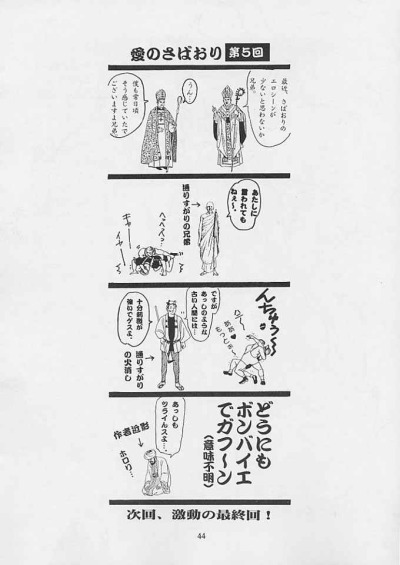 愛のさばおり 第5回
最近、さばおりの
エロシーンが
少ないと思わないか
兄弟。
うん…
僕も常日頃
そう感じていたで
ございますよ兄弟
あたしに
言われても
ねぇ〜。
通りすがりの兄弟→
へぇへぇっ?
キャー
イャーン
んちゅう〜〜
ですが
あっしのような
古い人間には、
十分刺激が
強いでゲスよ。
←通りすがり
の火消し
どうにも
ボンバイエ
でガフ〜ン
(意味不明)
あっしも
ツライんスよ…
作者近影
ホロリ…
次回、激動の最終回!
44